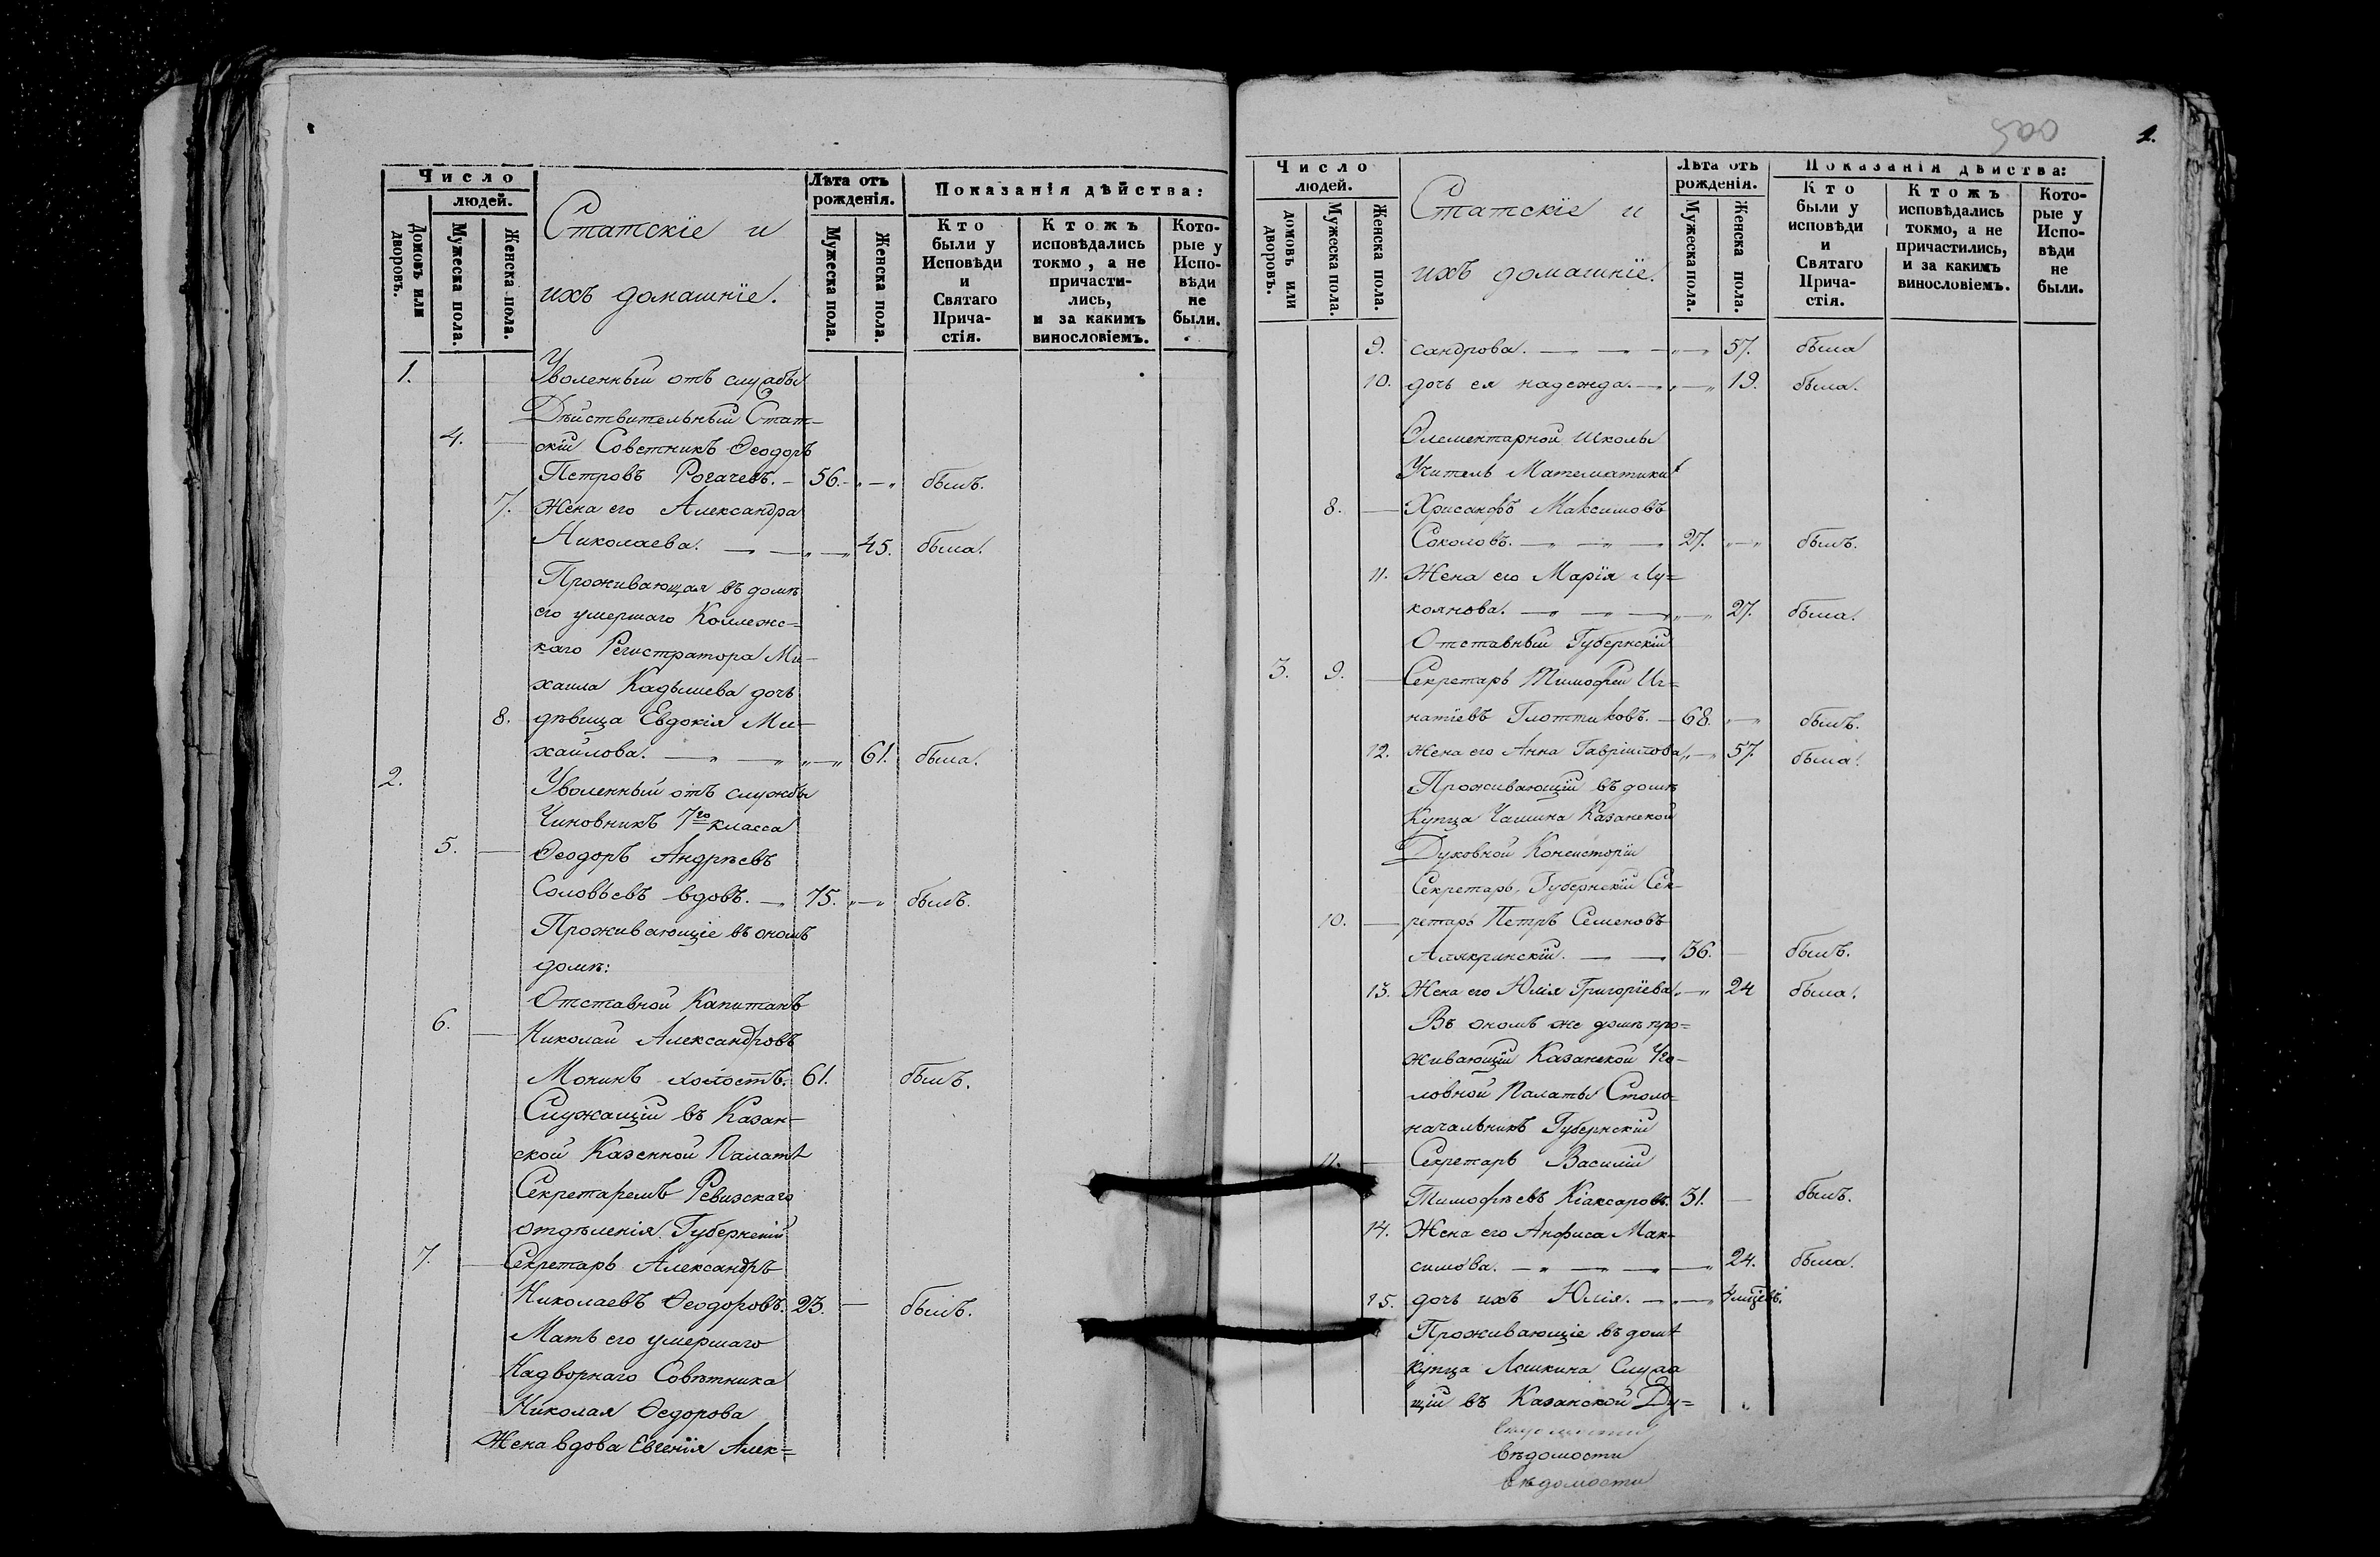 Число
людей.
Домовъ или дворовъ.
Мужеска пола.
Женска пола.
Статскіе и
ихъ домашніе.
Лѣта отъ рожденія.
Мужеска пола.
Женска пола.
Показанія дѣйства:
Кто были у Исповѣди и Святаго Прича- стія.
Ктожъ исповѣдались токмо, а не причасти- лись, и за какимъ винословіемъ.
Кото- рые у Испо- вѣди не были.
1. Уволенный отъ службы
Дѣйствительный Стат-
4. — скій Советникъ Ѳеодоръ
Петровъ Рогачевъ. — 56. — „ — „ былъ.
7. Жена его Александра
Николаева. — „ — „ — „ 45. была.
Проживающая въ домѣ
его умершаго Коллежс-
каго Регистратора Ми-
хаила Кадышева дочь
8. дѣвица Евдокія Ми-
хайлова. — „ — „ „ — „ 61. была.
2. Уволенный отъ службы
Чиновникъ 7го класса
5. — Ѳеодоръ Андрѣевъ
Соловьевъ вдовъ. — „ 75. „ — „ былъ.
Проживающіе въ ономъ
домѣ:
Отставной Капитанъ
6. — Николай Александровъ
Монинъ холостъ. 61. былъ.
Служащій въ Казан-
ской Казенной Палатѣ
Секретаремъ Ревизскаго
отдѣленія Губернскій
7. — Секретарь Александръ
Николаевъ Ѳеодоровъ. 23. — былъ.
Мать его умершаго
Надворнаго Совѣтника
Николая Ѳедорова
Жена вдова Евгенія Алек=
1.
Число
людей.
домовъ или дворовъ.
Мужеска пола.
Женска пола.
Статскіе и
ихъ домашніе.
Лѣта отъ рожденія.
Мужеска пола.
Женска пола.
Показанія дѣйства:
Кто были у исповѣди и Святаго Прича- стія.
Ктожъ исповѣдались токмо, а не причастились, и за какимъ винословіемъ.
Кото- рые у Испо- вѣди не были.
9. сандрова. — — — „ — 57. была
10. дочь ея надежда. — „ — „ 19. была.
Элементарной школы
Учитель Математики
8. — Хрисанфъ Максимовъ
Соколовъ. — „ — „ — „ 27. „ — „ былъ.
11. Жена его Марія Лу=
коянова. — „ — „ — „ — „ 27. была.
Отставный Губернскій
3. 9. — Секретарь Тимофей Иг=
натіевъ Глоттиковъ. — 68. „ — „ былъ.
12. Жена его Анна Гавріилова. „ — „ 57. была.
Проживающій въ домѣ
Купца Чашина Казанской
Духовной Консисторіи
Секретарь, Губернскій Сек-
10. — ретарь Петръ Семеновъ
Алякринскій. — — „ 36. — былъ.
13. Жена его Юлія Григоріева. „ — „ 24 была.
Въ ономъ же домѣ про=
живающій Казанской Уго-
ловной Палаты Столо=
начальникъ Губернскій
11. — Секретарь Василій
Тимофѣевъ Кіаксаровъ. 31. — былъ.
14. Жена его Анфиса Мак-
симова. — „ — — — 24. была.
15. дочь ихъ Юлія. — „ — „
Проживающіе въ домѣ
купца Лошкина Служа
щій въ Казанской Ду=
вѣдомости
вѣдомости